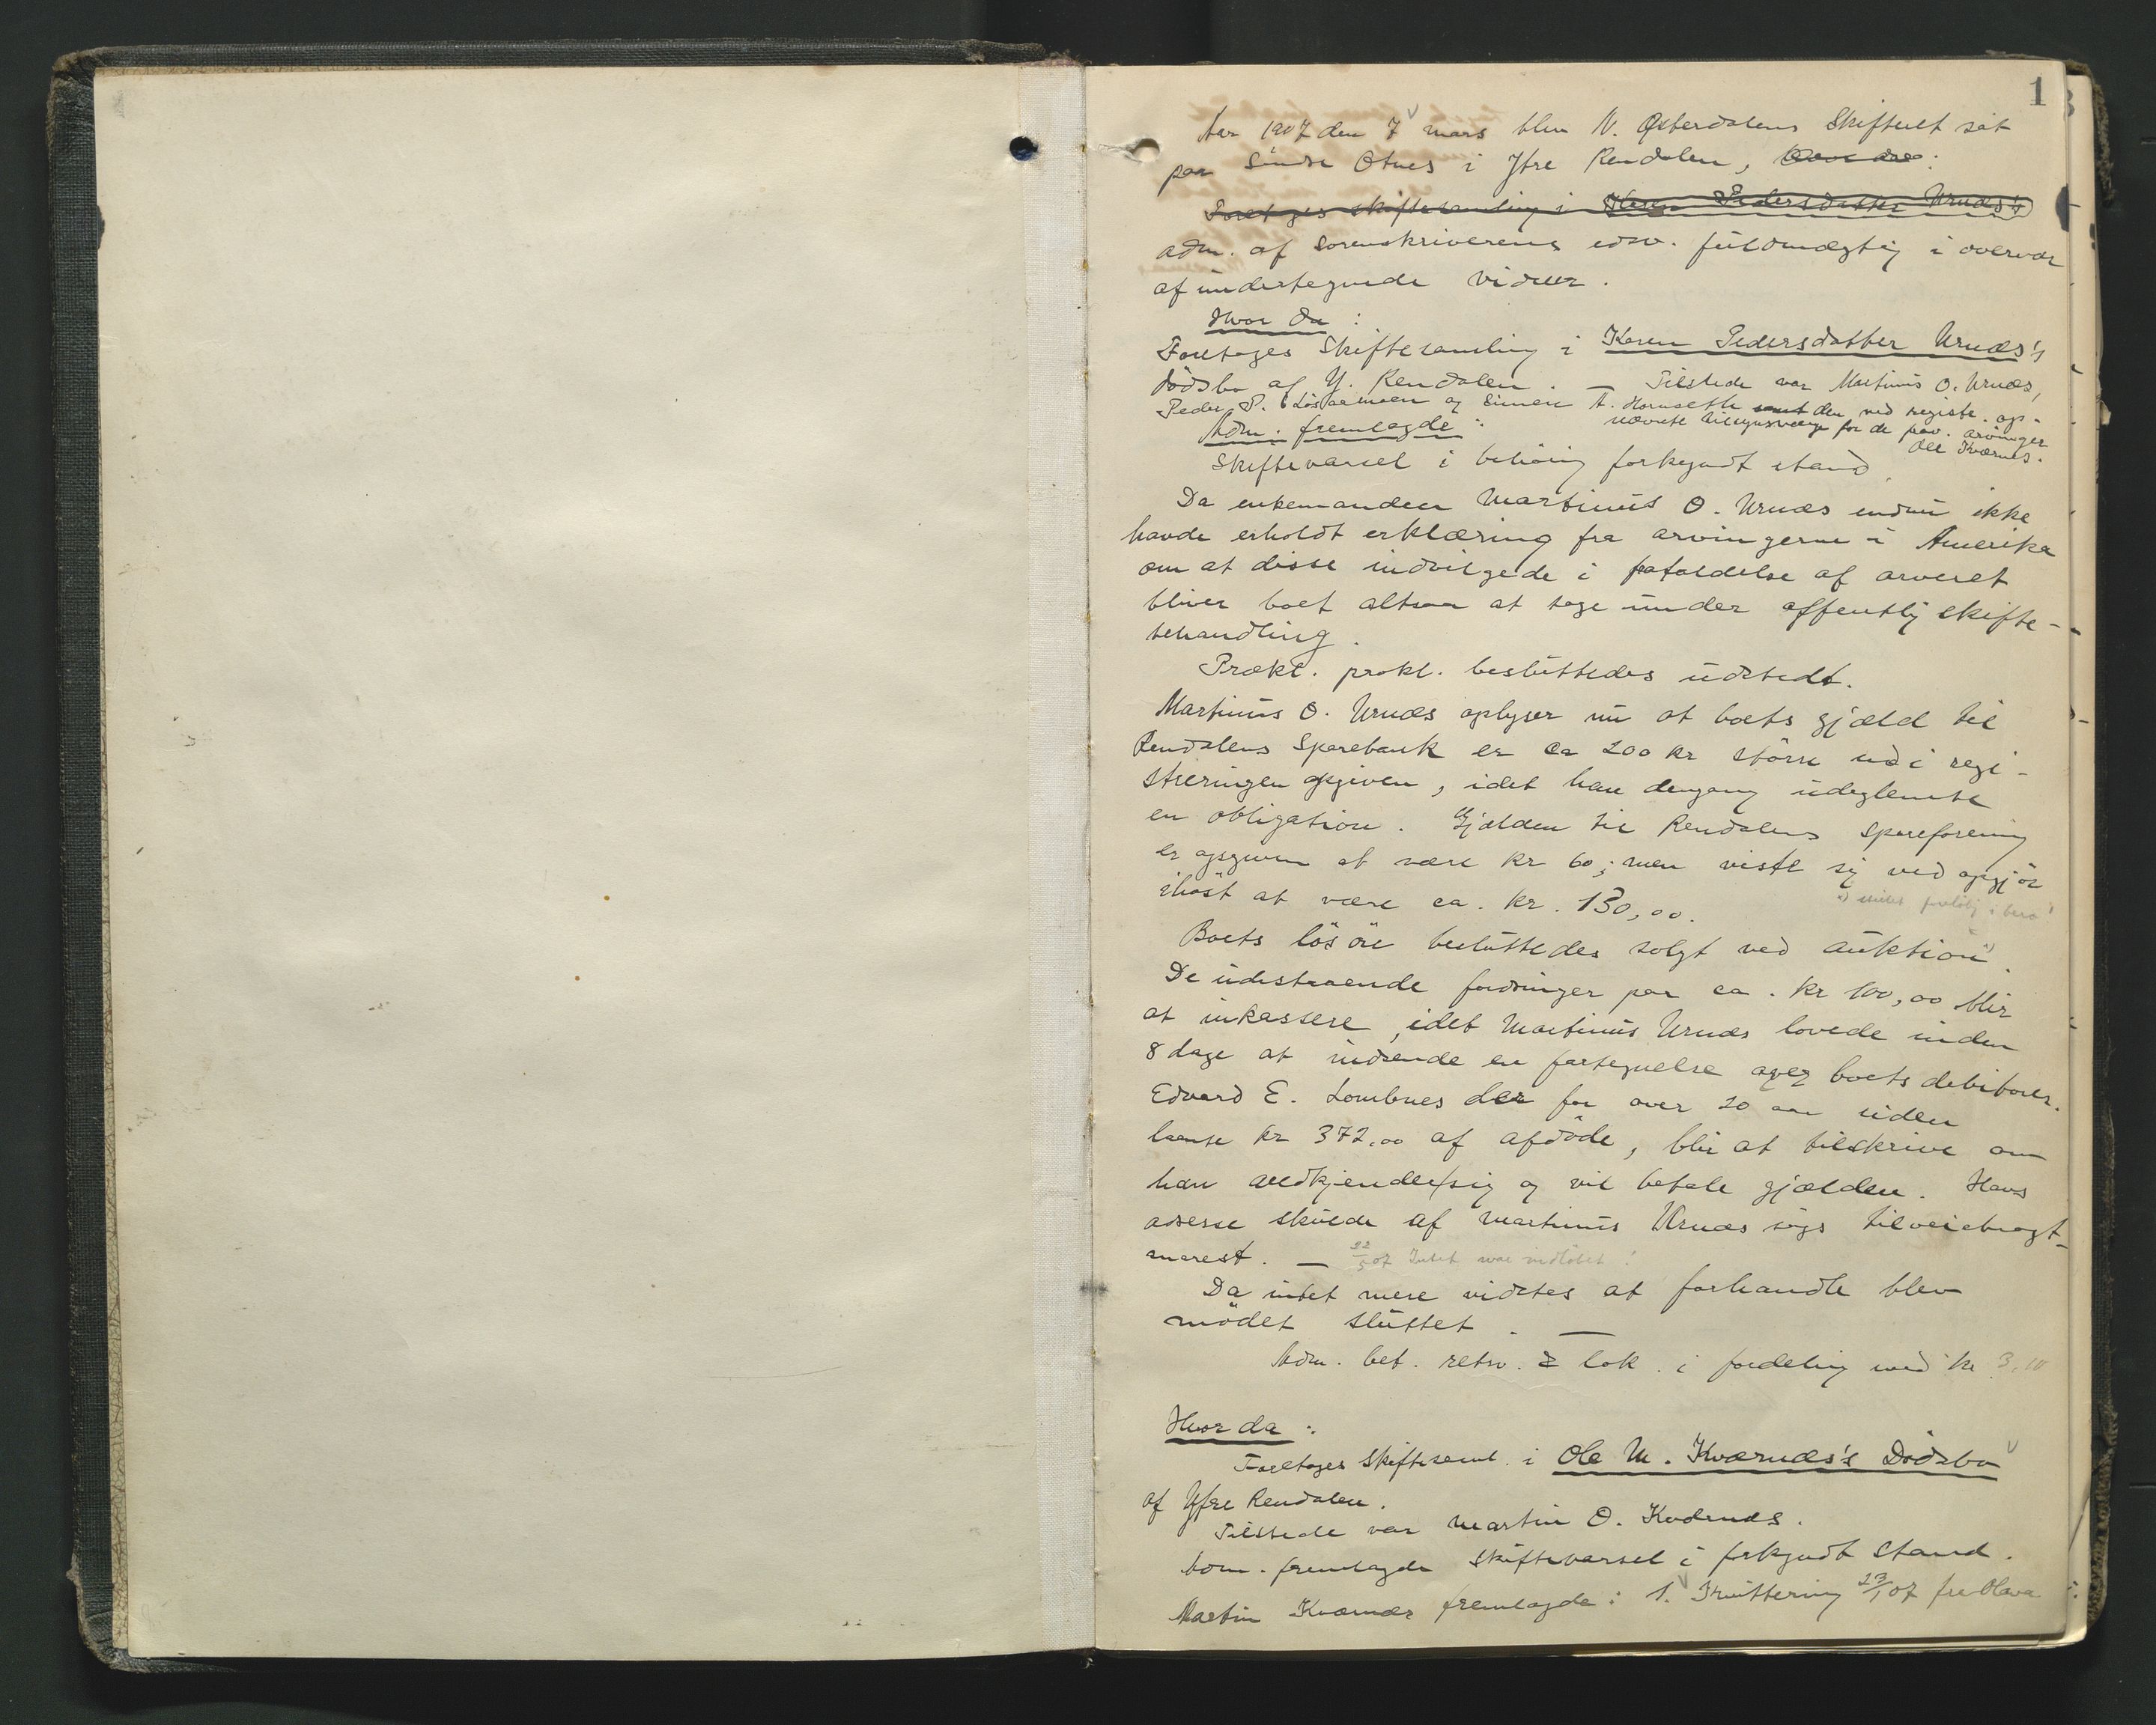 1
Aar 1907 den 7 mars blev N. Østerdalens Skifteret sat
paa Søndre Otnes i Ytre Rendalen,
Foretages skiftesamling i Karen Pedersdatter Urnæs's
adm. af sorenskriverens edsv. fuldmægtig i overvær
af undertegnede vidner.
Hvor da :
Foretages Skiftesamling i Karen Pedersdatter Urnæs's
dödsbo af Y. Rendalen. — Tilstede var Martinus O. Urnæs,
Peder P. Løsaamoen og Simen A. Hornseth samt den ved registr. op-
nævnte tilsynsværge for de frav. arvinger
Ole Kværnes.
Adm. fremlagde :
Skiftevarsel i behörig forkyndt stand
Da enkemanden Martinus O. Urnæs endnu ikke
havde erholdt erklæring fra arvingerne i Amerika
om at disse indvilgede i frafaldelse af arveret
bliver boet altsaa at tage under offentlig skifte-
behandling.
Prækl. prokl. besluttedes udstedt.
Martinus O. Urnæs oplyser nu at boets gjæld til
Rendalens Sparebank er ca 200 kr större end i regi-
streringen opgiven, idet han dengang udeglemte
en obligation. Gjælden til Rendalens Spareforening
er opgiven at være kr 60; men viste sig ved opgjör
ihöst at være ca. kr. 130,00.
Boets lösöre besluttedes solgt ved auktion
De udestaaende fordringer paa ca. kr 100,00 blir
at inkassere, idet Martinus Urnæs lovede inden
8 dage at indsende en fortegnelse over boets debitorer.
Edvard E. Lombnes der for over 20 aar siden
laante kr 372.00 af afdöde, blir at tilskrive om
han vedkjender sig og vil betale gjælden. Hans
adresse skulde af Martinus Urnæs søgs tilveiebragt
snarest. — 22/5 07 Intet var indløbet!
Da intet mere vidstes at forhandle blev
mödet sluttet. —
Adm. bet. retsv. & lok. i fordeling med kr 3,10
Hvor da :
Foretages Skiftesaml. i Ole M. Kværnæs's Dødsbo
af Ytre Rendalen.
Tilstede var Martin O. Kværnæs.
Adm. fremlagde skiftevarsel i forkyndt stand.
Martin Kværnæs fremlagde : 1. Kvittering 23/1 07 fra Olava